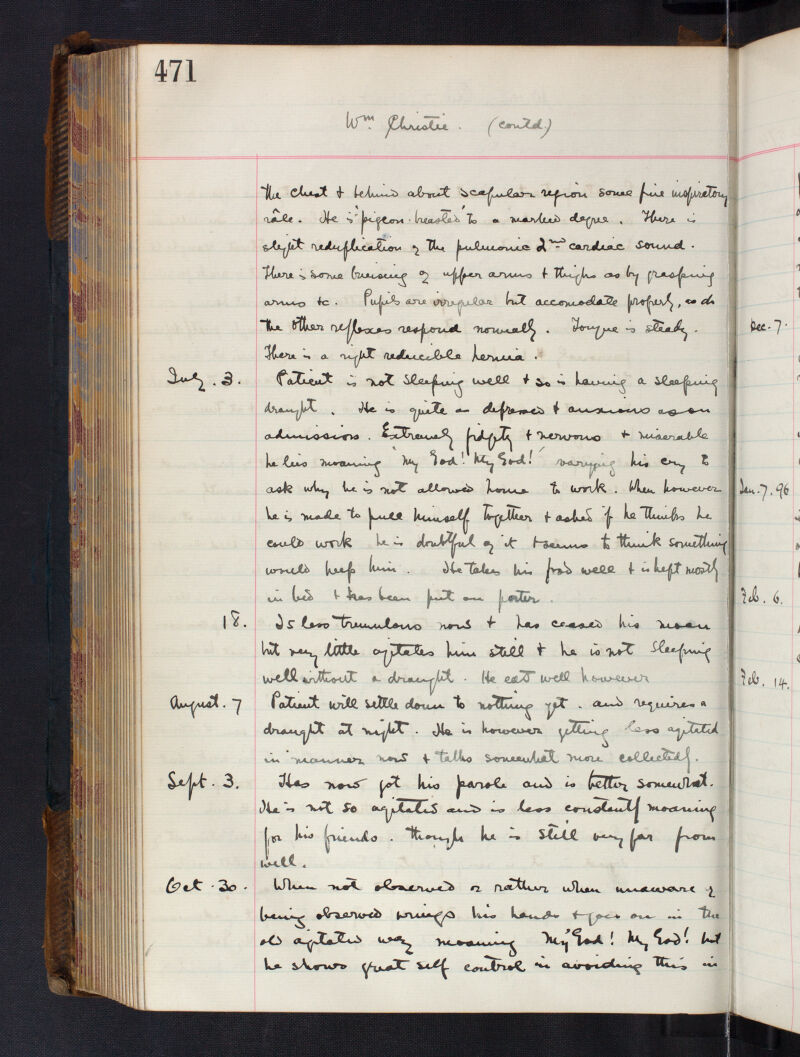 471
Wm. Christie. (contd.)
the chest & behind about scapular region some fine inspiratory
râle. He is "pigeon-breasted" to a marked degree. There is
slight reduplication of the pulmonic 2nd cardiac sound.
There is some bruising of upper arms & thighs as by grasping
arms &c. Pupils are irregular but accomodate properly, as do
the other reflexes respond normally. Tongue is steady.
There is a right reducible hernia.
July. 3. Patient is not sleeping well & so is having a sleeping
draught. He is quite as depressed & anxious as on
admission. Extremely fidgety & nervous & miserable
he lies moaning 'My God! My God!' varying his cry to
ask why he is not allowed home to work. When however
he is made to pull himself together & asked if he thinks he
could work he is doubtful of it & seems to think something
would keep him. He takes his food well & is kept mostly
in bed & has been put on porter.
18. Is less tremulous now & has ceased his moan
but very little agitates him still & he is not sleeping
well without a draught. He eats well however
August. 7 Patient will settle down to nothing yet. and requires a
draught at night. He is however getting less agitated
in manner now & talks somewhat more collectedly.
Sept. 3. Has now got his parole and is better somewhat.
He is not so agitated and is less constantly moaning
for his friends. though he is still very far from
well.
Oct. 30. When not observed or rather when unaware of
being observed wrings his hands & goes on in the
old agitated way moaning My God! My God! but
he shows great self control in avoiding this in
Dec. 7.
Jan. 7. 96
Feb. 6.
Feb. 14.